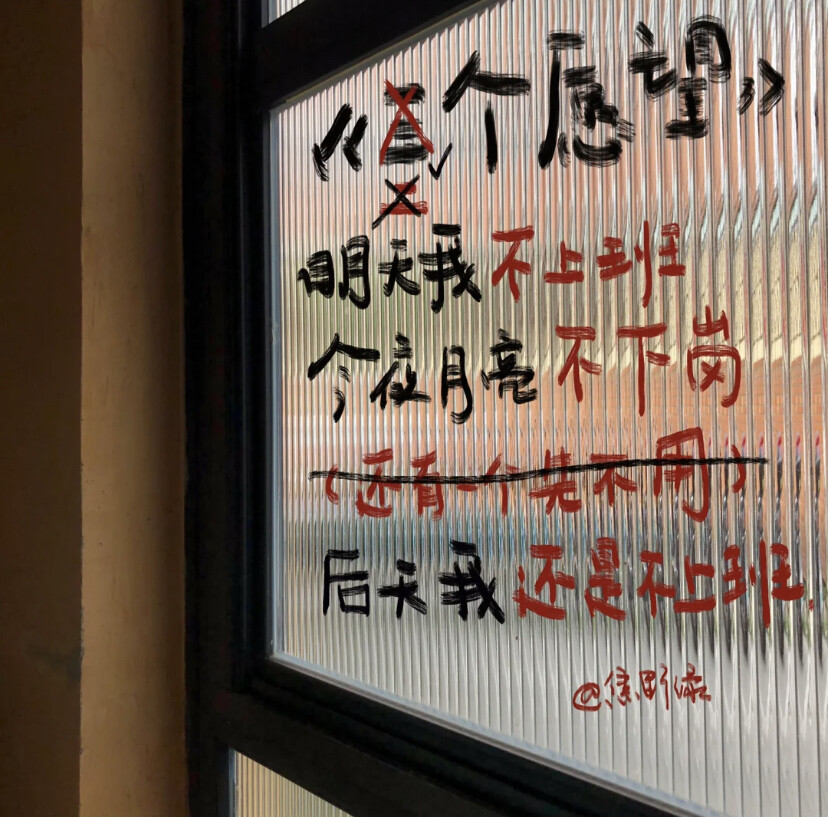 《三个愿望》
二
明天我不上班
今夜月亮不下岗
(还有一个先不用)
后天我还是不上班.